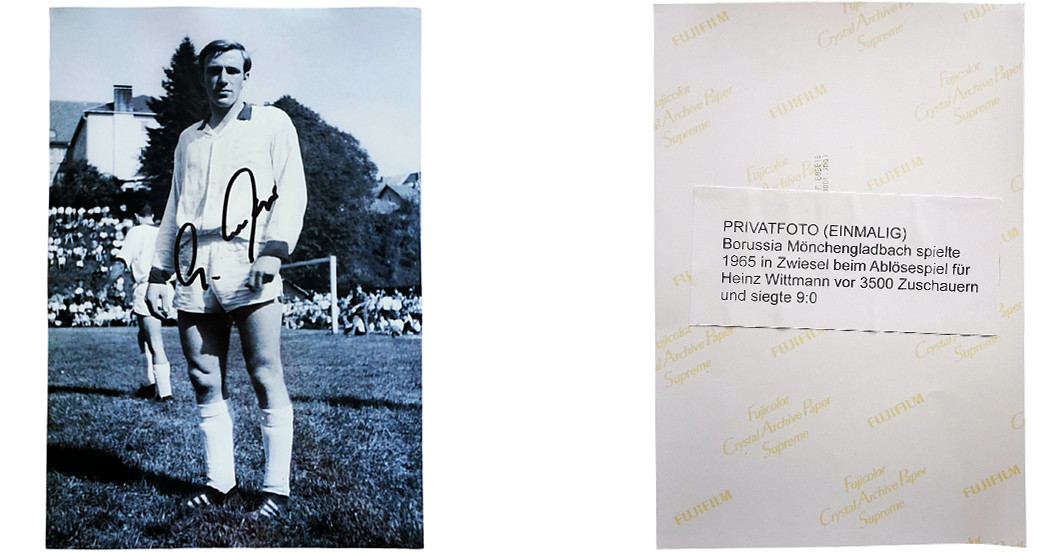 FUJIFILM
Fujicolor
Crystal Archive Paper
Supreme
Fujicolor
Crystal Archive Paper
Supreme
FUJIFILM
Fujicolor
Crystal Archive Paper
Supreme
Fujicolor
FUJIFILM
PRIVATFOTO (EINMALIG)
Borussia Mönchengladbach spielte
1965 in Zwiesel beim Ablösespiel für
Heinz Wittmann vor 3500 Zuschauern
und siegte 9:0
Crystal Archive Paper
Supreme
Fujicolor
Crystal Archive Paper
Supreme
FUJIFILM
Fujicolor
Crystal Archive Paper
Supreme
FUJIFILM
FUJIFILM